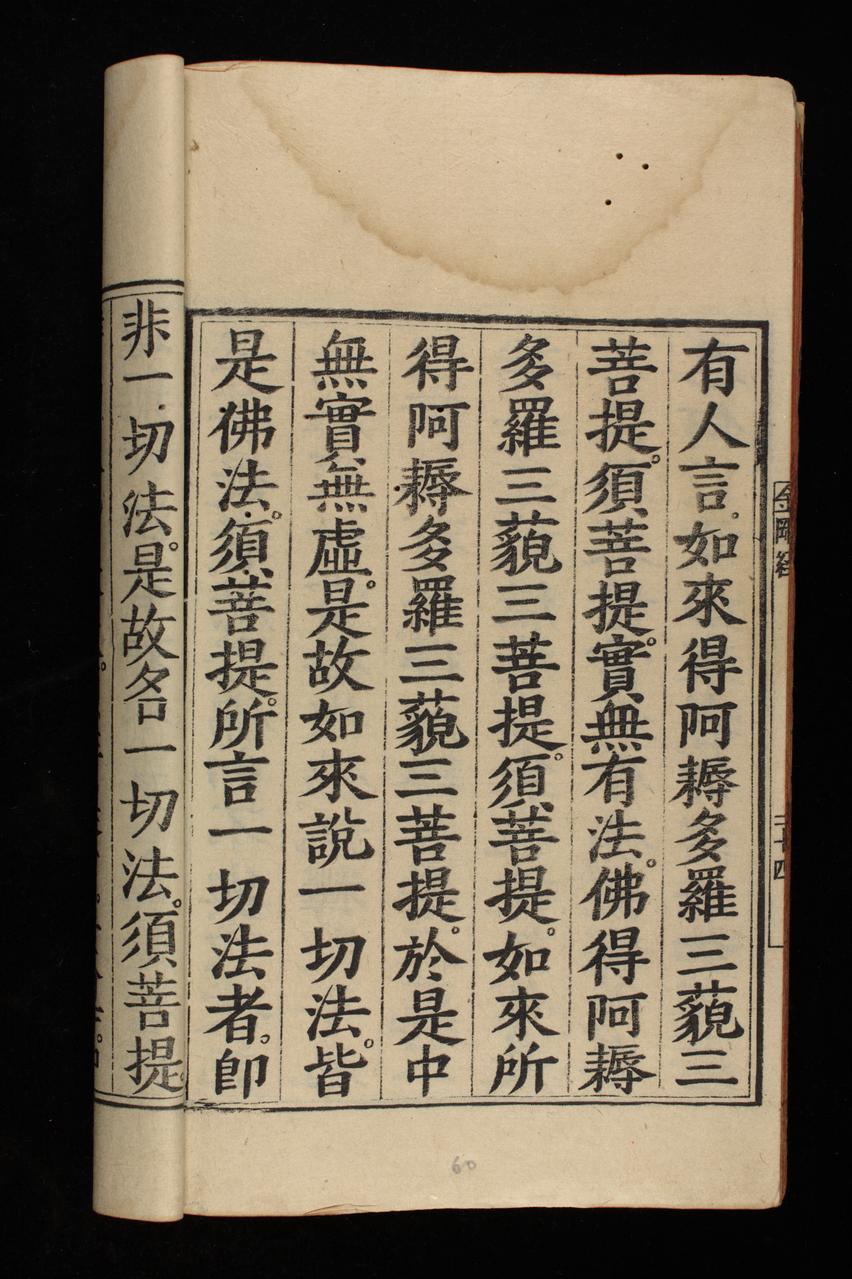 有人言。如來得阿耨多羅三藐三
菩提。須菩提。實無有法。佛得阿耨
多羅三藐三菩提。須菩提。如來所
得阿耨多羅三藐三菩提。於是中
無實無虛。是故如來說一切法。皆
是佛法。須菩提。所言一切法者。即
非一切法。是故名一切法。須菩提。
金剛經
三十四
60